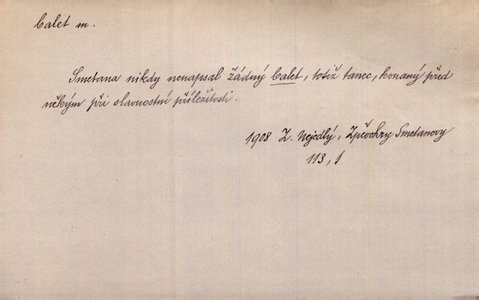 balet m.
Smetana nikdy nenapsal žádný balet, totiž tanec, konaný před
někým při slavnostní příležitosti.
1908 Z. Nejedlý, Zpěvohry Smetanovy
113, 1